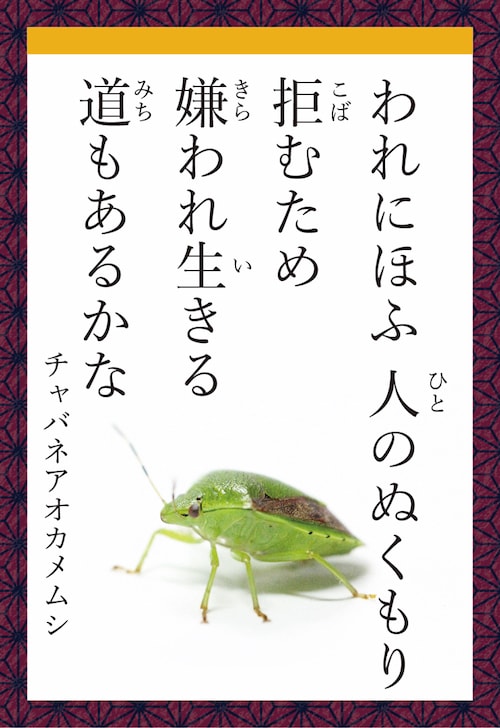 われにほふ 人のぬくもり
拒むため
嫌われ生きる
道もあるかな
チャバネアオカメムシ